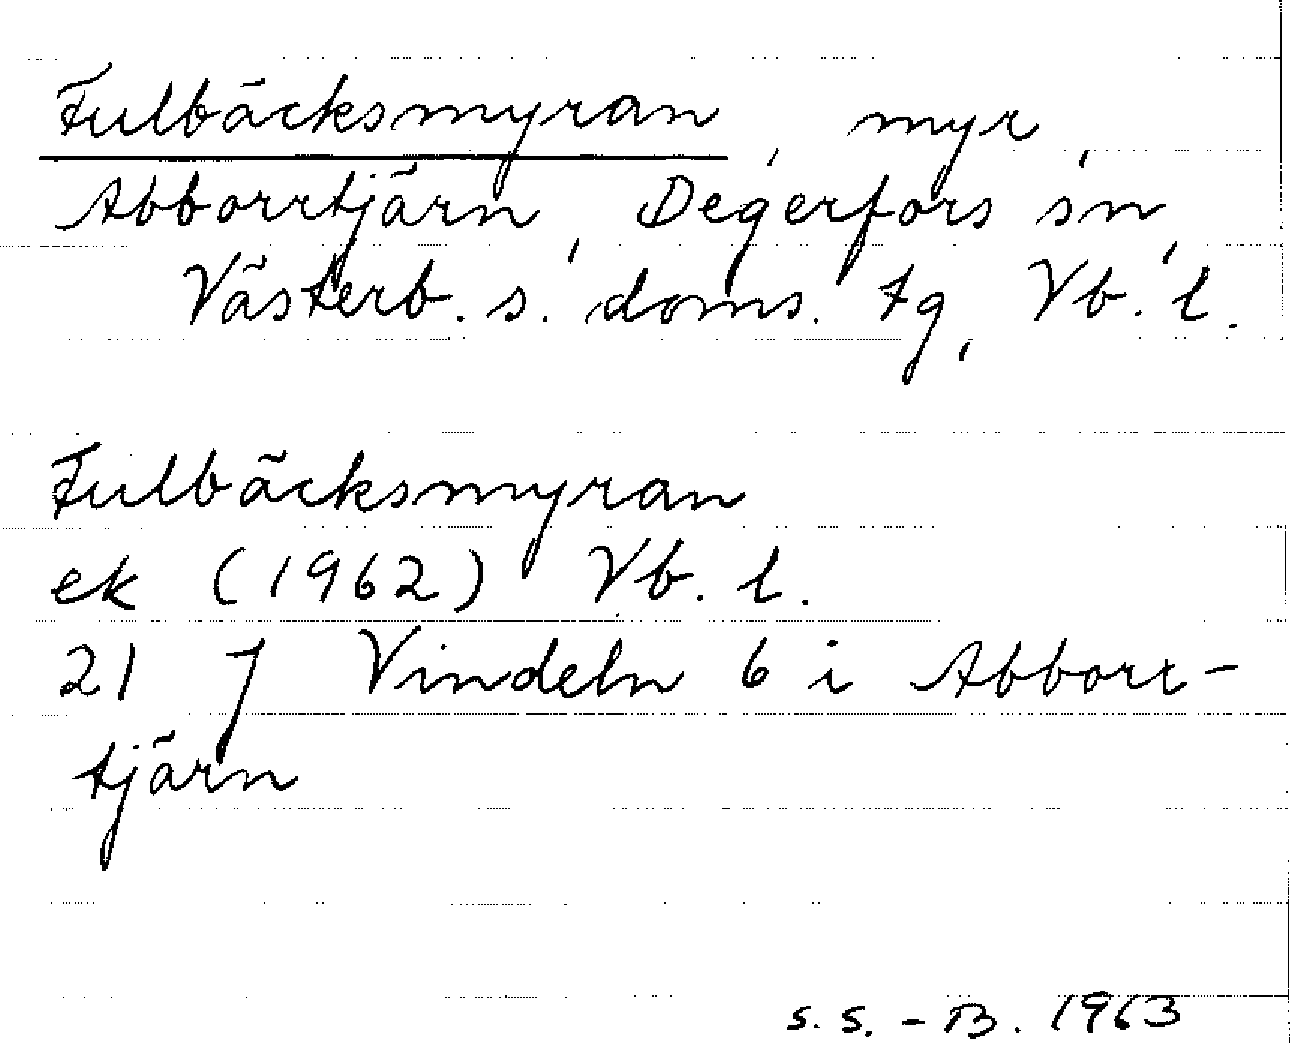 Fulbäcksmyran, myr,
Abborrtjärn, Degerfors sn,
Västerb. s. doms. tg, Vb. l.
Fulbäcksmyran
ek (1962) Vb. l.
21 J Vindeln 6 i Abborr-
tjärn
S. S. - B. 1963